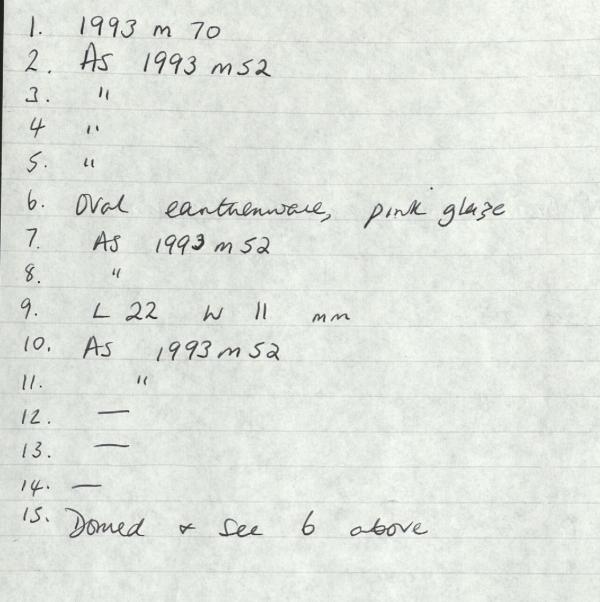 1. 1993 m 70
2. As 1993 m 52
3. "
4 "
5. "
6. Oval earthenware, pink glaze
7. As 1993 m 52
8. "
9. L 22 W 11 mm
10. As 1993 m 52
11. "
12. —
13. —
14. —
15. Domed & see 6 above